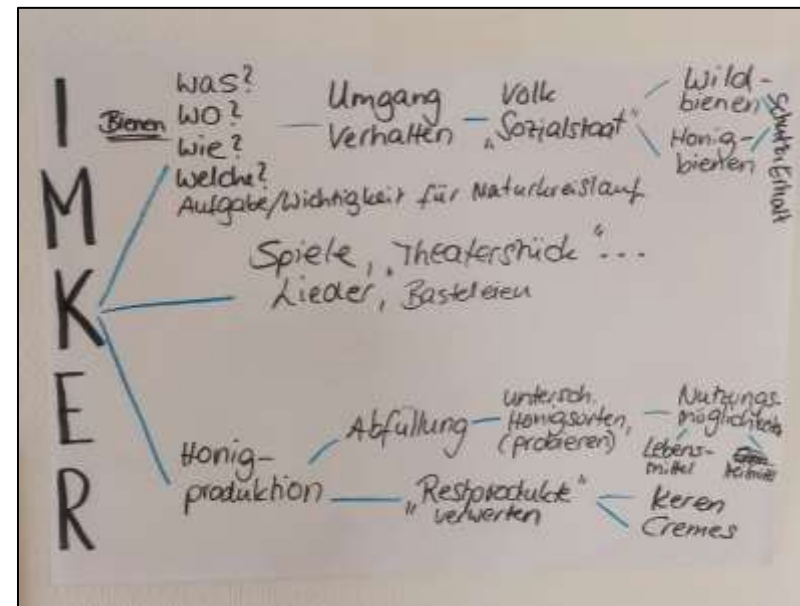 IMKER
Bienen
Was?
Wo?
Wie?
Welche?
Aufgabe/Wichtigkeit für Naturkreislauf
Umgang
Verhalten
Volk
„Sozialstaat“
Wild-
bienen
Honig-
bienen
Schutz
Erhalt
Spiele, „Theaterstück“...
Lieder, Basteleien
Honig-
produktion
Abfüllung
untersch.
Honigsorten,
(probieren)
Nutzungs-
möglichkeiten
Lebens-
mittel
Heilmittel
„Restprodukte“
verwerten
Keren
Cremes